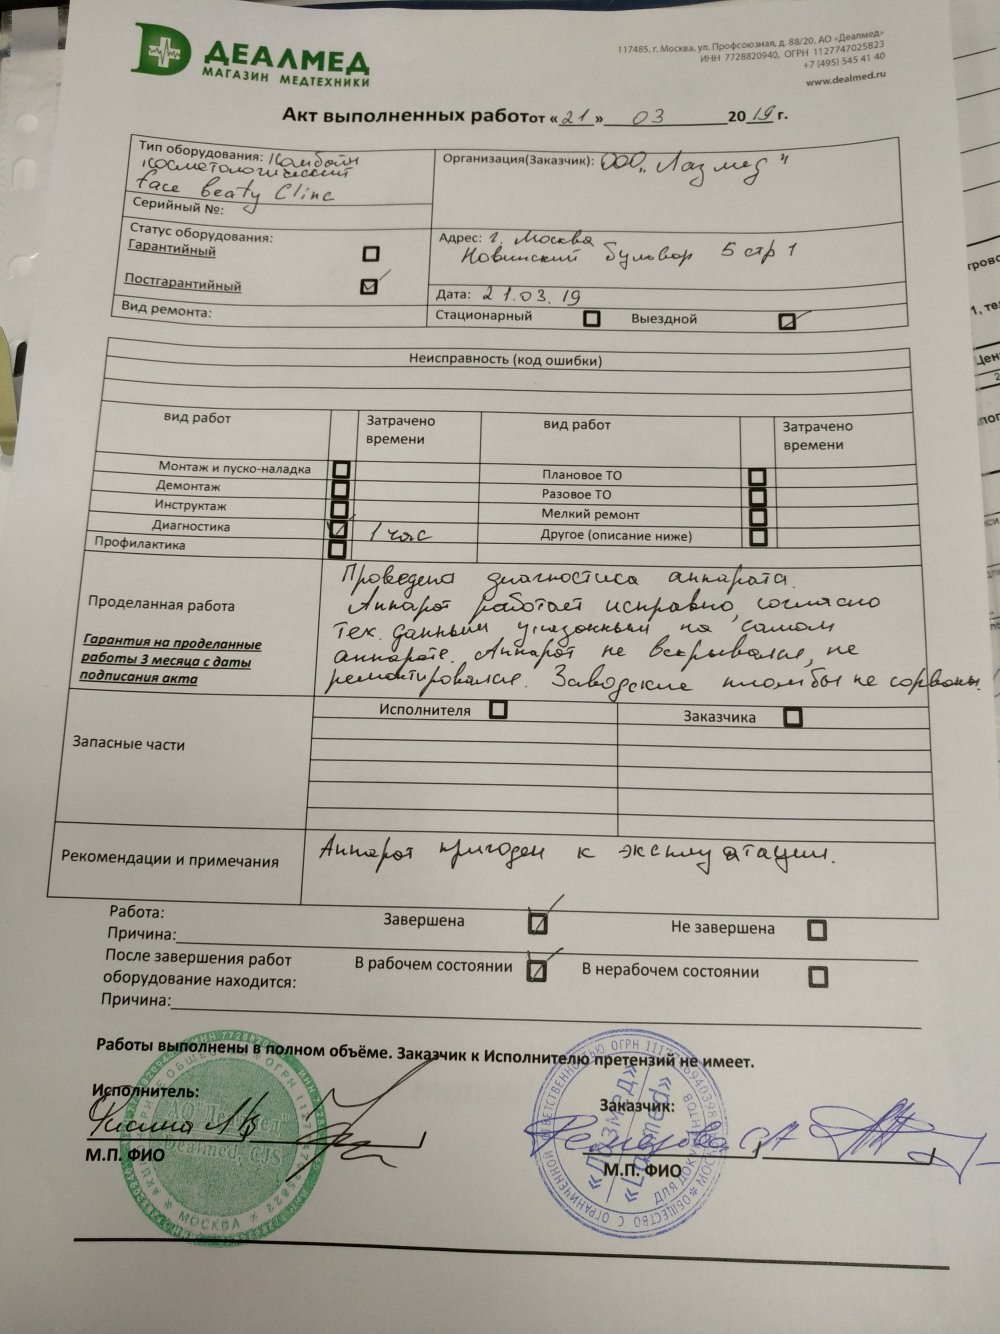 ДЕАЛМЕД
МАГАЗИН МЕДТЕХНИКИ
117485, г. Москва, ул. Профсоюзная, д. 88/20, АО «Деалмед»
ИНН 7728820940, ОГРН 1127747025823
+7 (495) 545 41 40
www.dealmed.ru
Акт выполненных работ от «21» 03 2019 г.
Тип оборудования: Комбайн
косметологический
face beaty Clinc
Серийный №:
Организация(Заказчик): ООО „Лазмед"
Статус оборудования:
Гарантийный
Постгарантийный
Адрес: г. Москва
Новинский бульвар 5 стр 1
Дата: 21.03.19
Вид ремонта:
Стационарный Выездной
Неисправность (код ошибки)
вид работ Затрачено времени вид работ Затрачено времени
Монтаж и пуско-наладка Плановое ТО
Демонтаж Разовое ТО
Инструктаж Мелкий ремонт
Диагностика 1 час Другое (описание ниже)
Профилактика
Проделанная работа
Гарантия на проделанные
работы 3 месяца с даты
подписания акта
Проведена диагностика аппарата.
Аппарат работает исправно, согласно
тех. данным указанным на самом
аппарате. Аппарат не вскрывался, не
ремонтировался. Заводские пломбы не сорваны.
Запасные части
Исполнителя Заказчика
Рекомендации и примечания
Аппарат пригоден к эксплуатации.
Работа: Завершена Не завершена
Причина:
После завершения работ В рабочем состоянии В нерабочем состоянии
оборудование находится:
Причина:
Работы выполнены в полном объёме. Заказчик к Исполнителю претензий не имеет.
Исполнитель:
М.П. ФИО
Заказчик:
М.П. ФИО
Dealmed, CJS
МОСКВА
«ЛАЗМЕД»
«Lazmed»